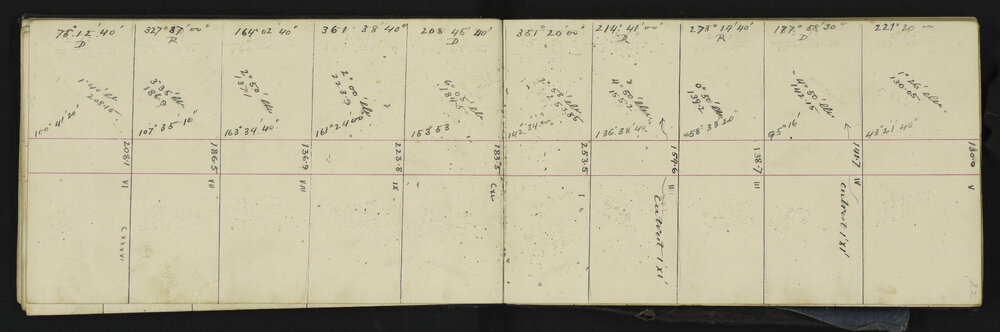 75° 12' 40"
D
1° 40' Elv
208.15
100° 41' 20"
2081
VI
CXXXVI
327° 37' 00"
R
3° 35' Elv
186.9
107° 35' 10"
186.5
VII
164° 02' 40"
2° 50' Elv
137.1
163° 34' 40"
136.9
VIII
361 38' 40"
2° 00' Elv
223.9
161° 24' 00"
223.8
IX
208 45' 40"
D
6° 05' Elv
184.5
153 53
183.5
CXL
351° 20 00"
2° 53' Elv
253.85
142° 34' 20"
253.5
I
214° 41' 00"
R
4° 50' Elv
155.2
136° 38' 40"
154.6
II
Culvert 1'x1'
273° 14' 40"
R
0° 50' Elv
139.2
58° 33' 20"
138.7
III
187° 58' 30"
D
4° 50' Elv
142.15
95° 16'
141.7
IV
Culvert 1'x1'
221° 20
1° 26' Elev
130.05
43° 21' 40"
1300
V
22